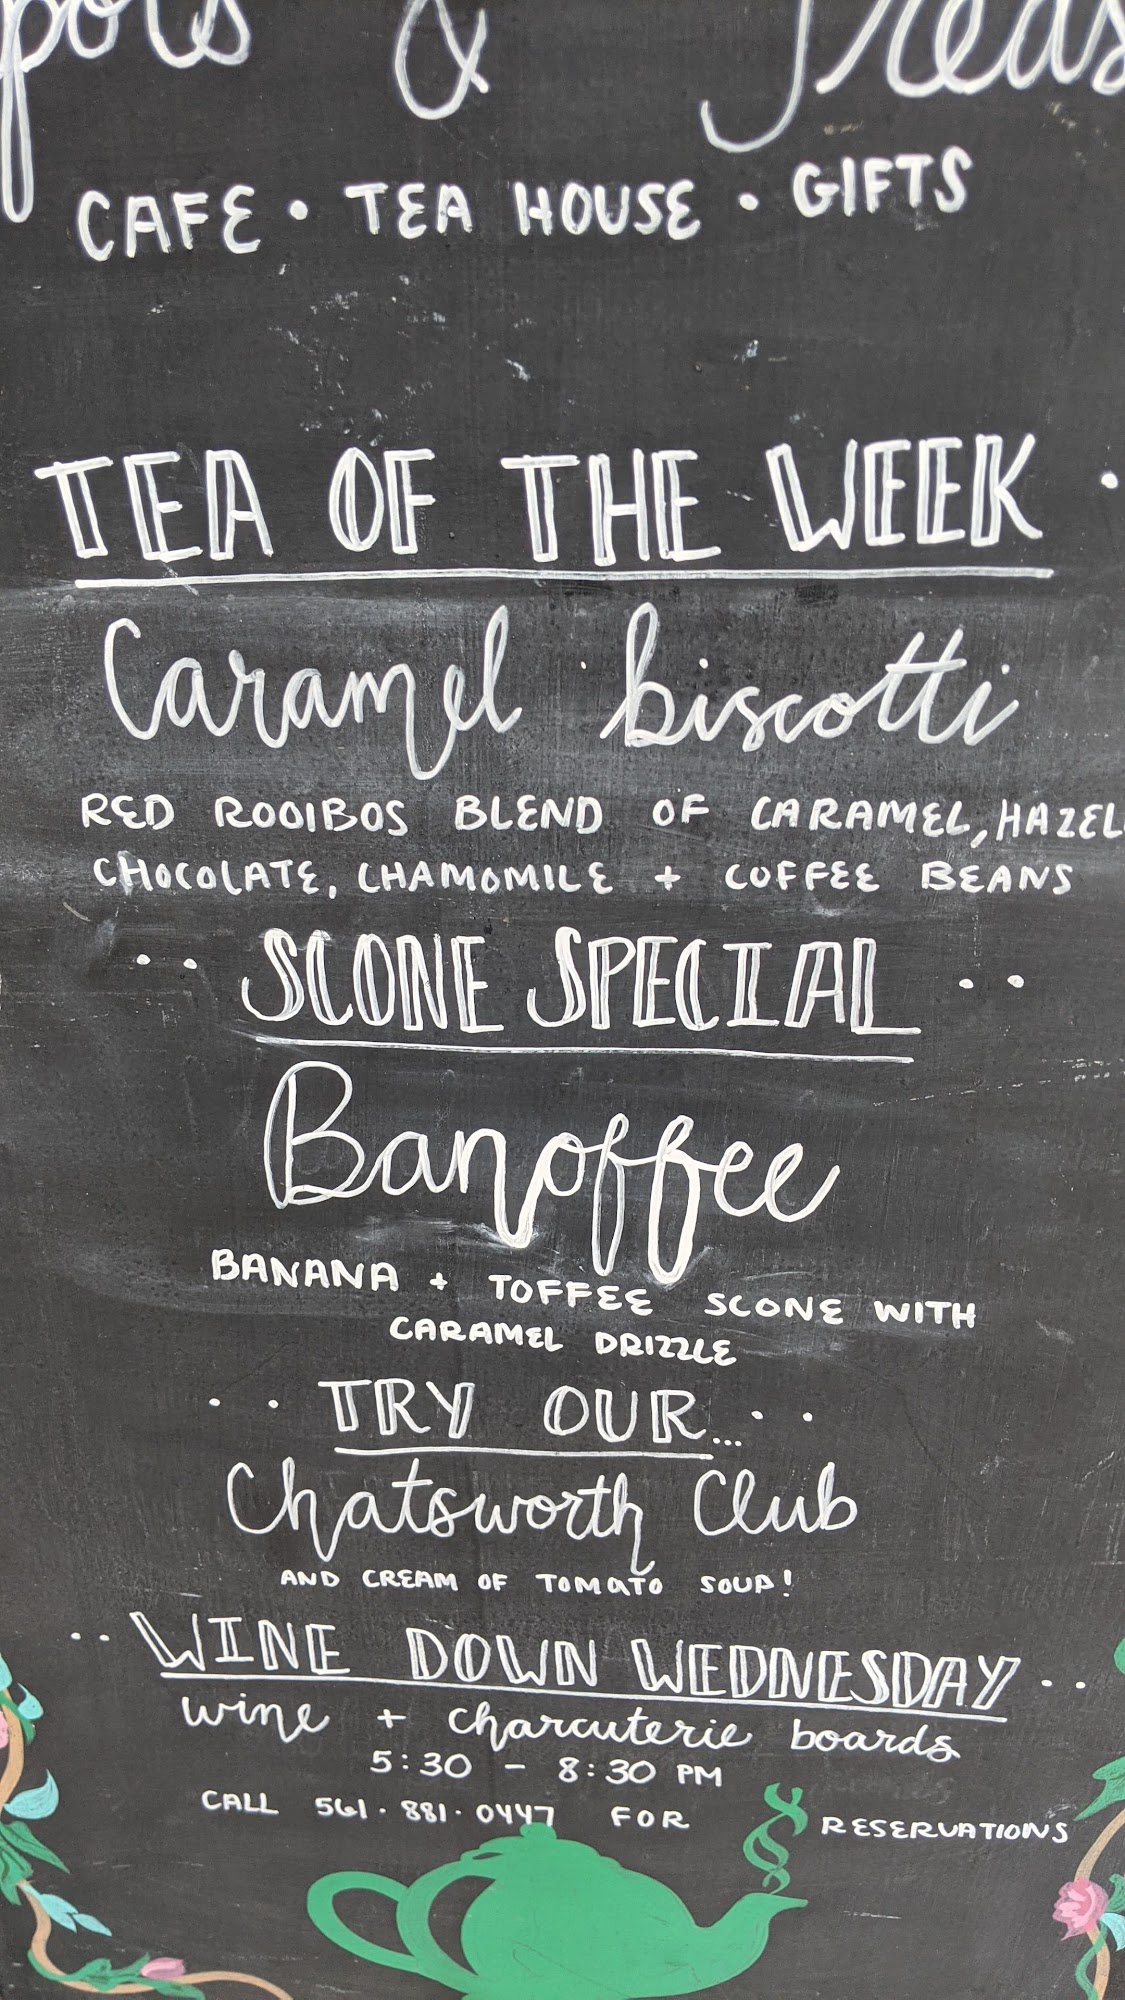 pots & Treas
CAFE • TEA HOUSE • GIFTS
TEA OF THE WEEK
Caramel biscotti
RED ROOIBOS BLEND OF CARAMEL, HAZEL
CHOCOLATE, CHAMOMILE + COFFEE BEANS
SCONE SPECIAL
Banoffee
BANANA + TOFFEE SCONE WITH
CARAMEL DRIZZLE
TRY OUR...
Chatsworth Club
AND CREAM OF TOMATO SOUP!
WINE DOWN WEDNESDAY
wine + charcuterie boards
5:30 - 8:30 PM
CALL 561·881·0447 FOR RESERVATIONS